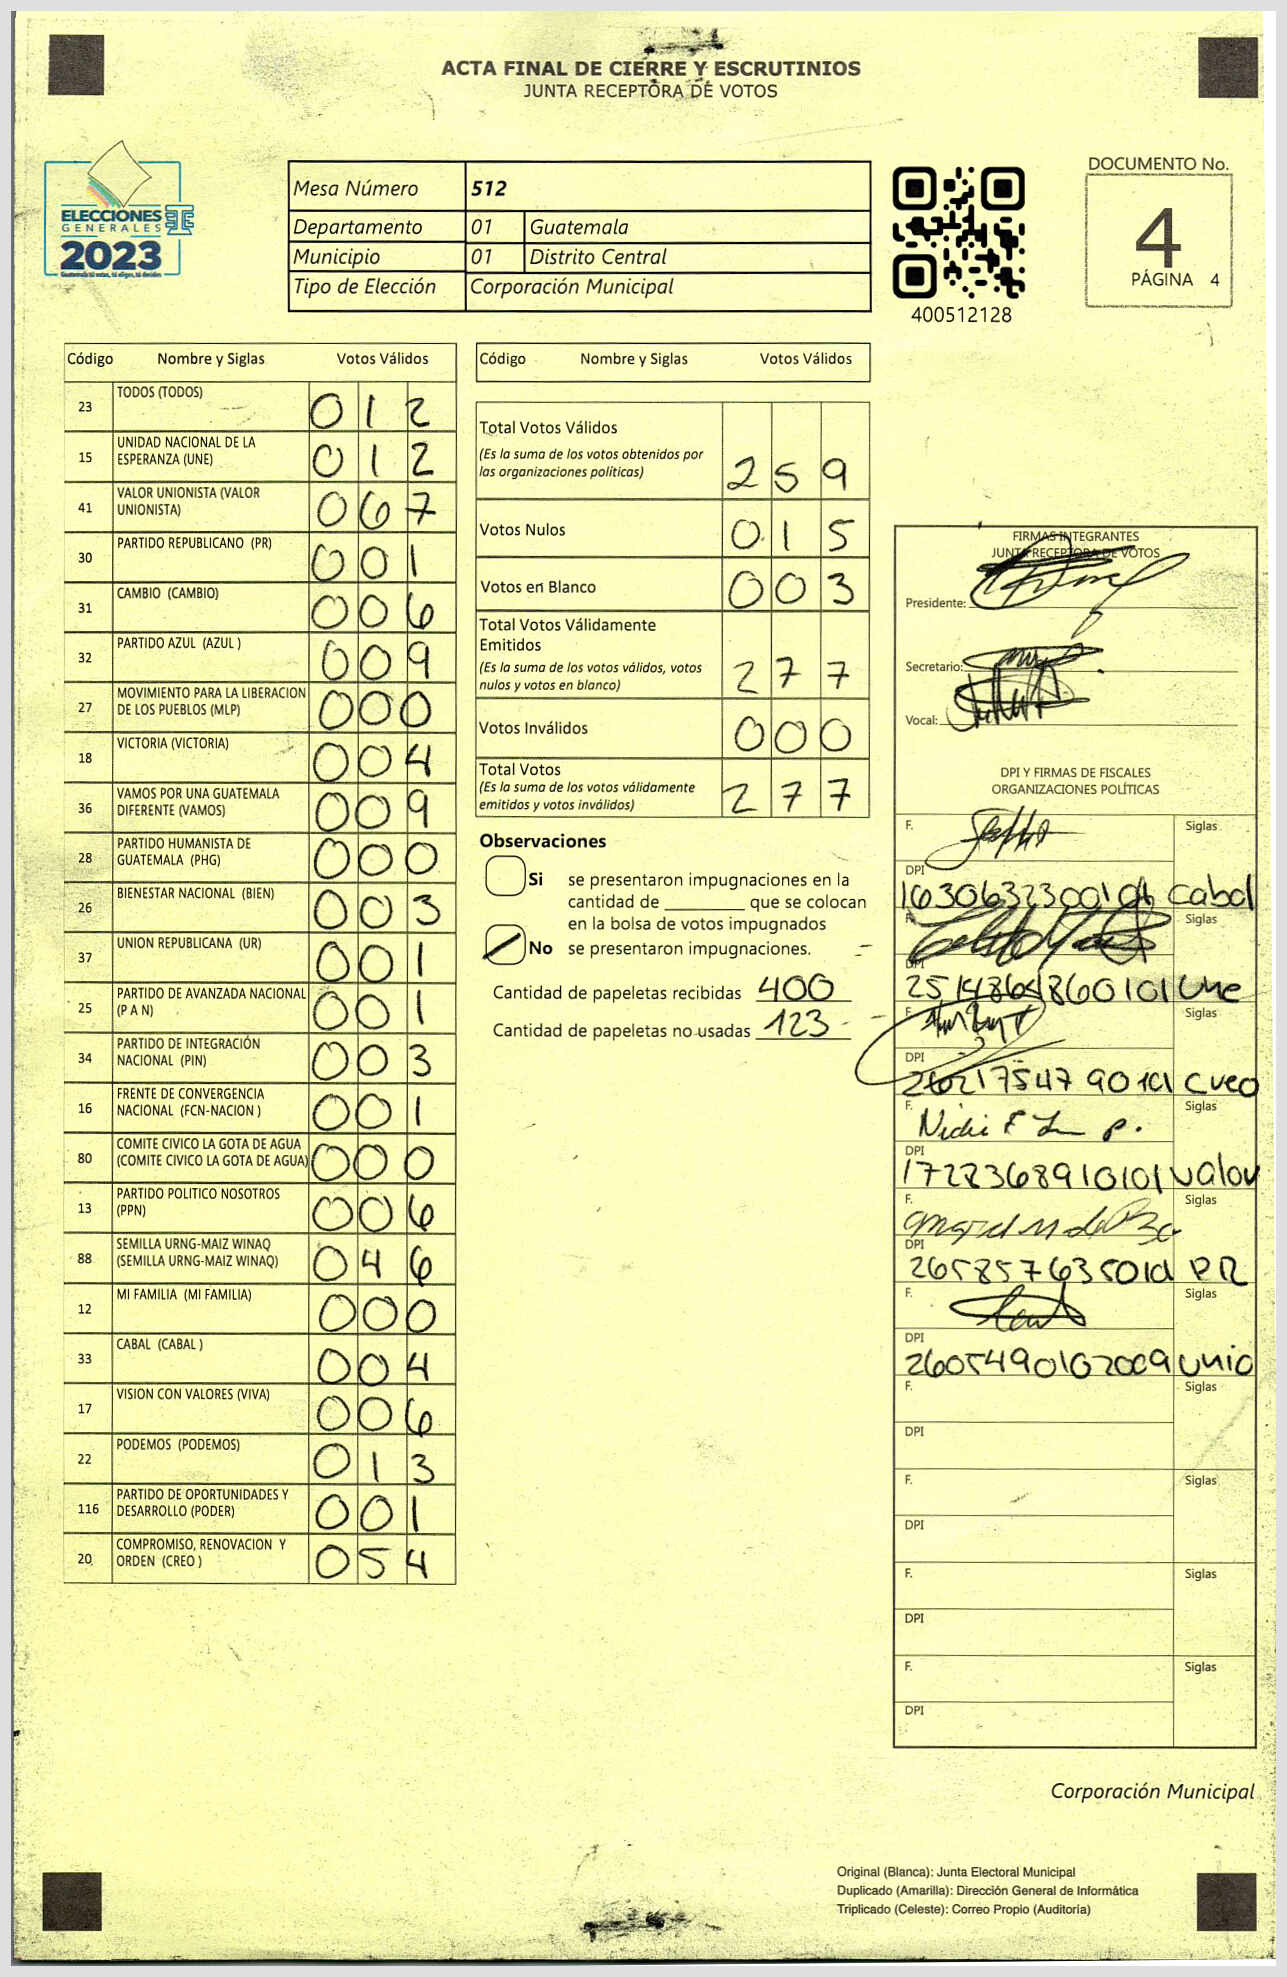 ACTA FINAL DE CIERRE Y ESCRUTINIOS
JUNTA RECEPTORA DE VOTOS
ELECCIONES
GENERALES
2023
Guatemala tú votas, tú eliges, tú decides
Mesa Número 512
Departamento 01 Guatemala
Municipio 01 Distrito Central
Tipo de Elección Corporación Municipal
400512128
DOCUMENTO No.
4
PÁGINA 4
Código Nombre y Siglas Votos Válidos
23 TODOS (TODOS) 012
15 UNIDAD NACIONAL DE LA
ESPERANZA (UNE) 012
41 VALOR UNIONISTA (VALOR
UNIONISTA) 067
30 PARTIDO REPUBLICANO (PR) 001
31 CAMBIO (CAMBIO) 006
32 PARTIDO AZUL (AZUL ) 009
27 MOVIMIENTO PARA LA LIBERACION
DE LOS PUEBLOS (MLP) 000
18 VICTORIA (VICTORIA) 004
36 VAMOS POR UNA GUATEMALA
DIFERENTE (VAMOS) 009
28 PARTIDO HUMANISTA DE
GUATEMALA (PHG) 000
26 BIENESTAR NACIONAL (BIEN) 003
37 UNION REPUBLICANA (UR) 001
25 PARTIDO DE AVANZADA NACIONAL
(P A N) 001
34 PARTIDO DE INTEGRACIÓN
NACIONAL (PIN) 003
16 FRENTE DE CONVERGENCIA
NACIONAL (FCN-NACION ) 001
80 COMITE CIVICO LA GOTA DE AGUA
(COMITE CIVICO LA GOTA DE AGUA) 000
13 PARTIDO POLITICO NOSOTROS
(PPN) 006
88 SEMILLA URNG-MAIZ WINAQ
(SEMILLA URNG-MAIZ WINAQ) 046
12 MI FAMILIA (MI FAMILIA) 000
33 CABAL (CABAL ) 004
17 VISION CON VALORES (VIVA) 006
22 PODEMOS (PODEMOS) 013
116 PARTIDO DE OPORTUNIDADES Y
DESARROLLO (PODER) 001
20 COMPROMISO, RENOVACION Y
ORDEN (CREO ) 054
Código Nombre y Siglas Votos Válidos
Total Votos Válidos
(Es la suma de los votos obtenidos por
las organizaciones políticas) 259
Votos Nulos 015
Votos en Blanco 003
Total Votos Válidamente
Emitidos
(Es la suma de los votos válidos, votos
nulos y votos en blanco) 277
Votos Inválidos 000
Total Votos
(Es la suma de los votos válidamente
emitidos y votos inválidos) 277
Observaciones
Si se presentaron impugnaciones en la
cantidad de ________ que se colocan
en la bolsa de votos impugnados
No se presentaron impugnaciones.
Cantidad de papeletas recibidas 400
Cantidad de papeletas no usadas 123
FIRMAS INTEGRANTES
JUNTA RECEPTORA DE VOTOS
Presidente:
Secretario:
Vocal:
DPI Y FIRMAS DE FISCALES
ORGANIZACIONES POLÍTICAS
F. Siglas
DPI
Cabal
F. Siglas
DPI
2514864860101 Une
F. Siglas
DPI
F. Siglas
DPI
1722368910101 Valor
F. Siglas
DPI
PR
F. Siglas
DPI
2605490102009 unio
F. Siglas
DPI
F. Siglas
DPI
F. Siglas
DPI
F. Siglas
DPI
Corporación Municipal
Original (Blanca): Junta Electoral Municipal
Duplicado (Amarilla): Dirección General de Informática
Triplicado (Celeste): Correo Propio (Auditoría)